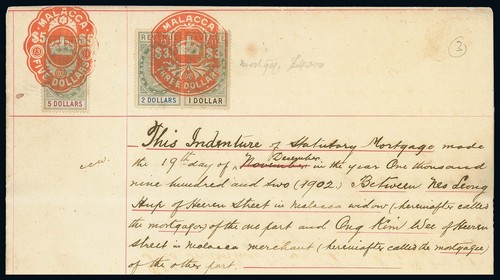 MALACCA
$5 $5
FIVE DOLLARS
5 DOLLARS
MALACCA
$3 $3
THREE DOLLARS
2 DOLLARS
1 DOLLAR
mortgage
3
This Indenture of Statutory Mortgage made
the 19th day of November December in the year One thousand
nine hundred and two (1902) Between Neo Leong
Hup of Heeren Street in Malacca widow (hereinafter called
the mortgagor) of the one part and Ong Kim Wee of Heeren
Street in Malacca merchant (hereinafter called the mortgagee)
of the other part